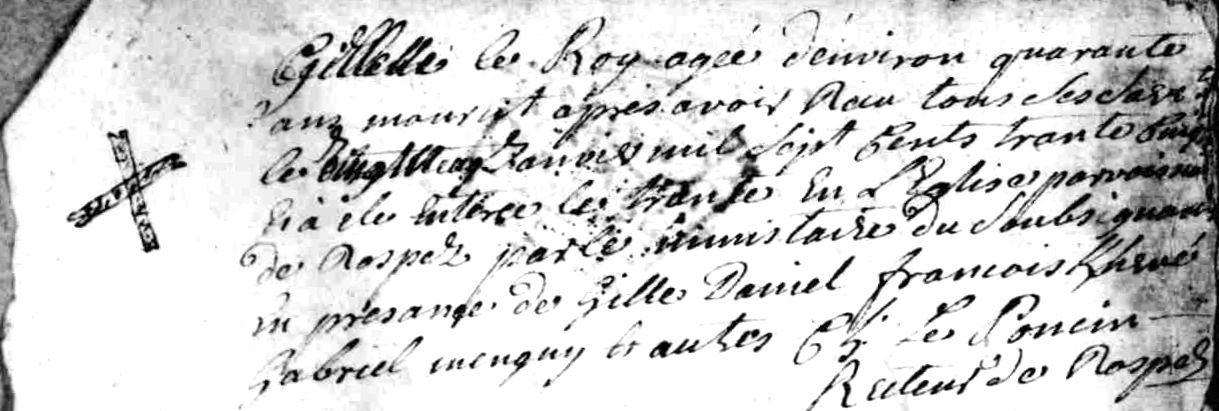 Gillette le Roy agée d'environ quarante
ans mourut apres avoir Receu tous ses
le janvier mil Sept Cents trante Cinq
Et a ete Enteree le trante En L'Eglise
de Rospez par le ministaire du Soubsignant
En presance de Gille Daniel francois
Gabriel menguy & autres Le Poncin
Recteur de Rospez